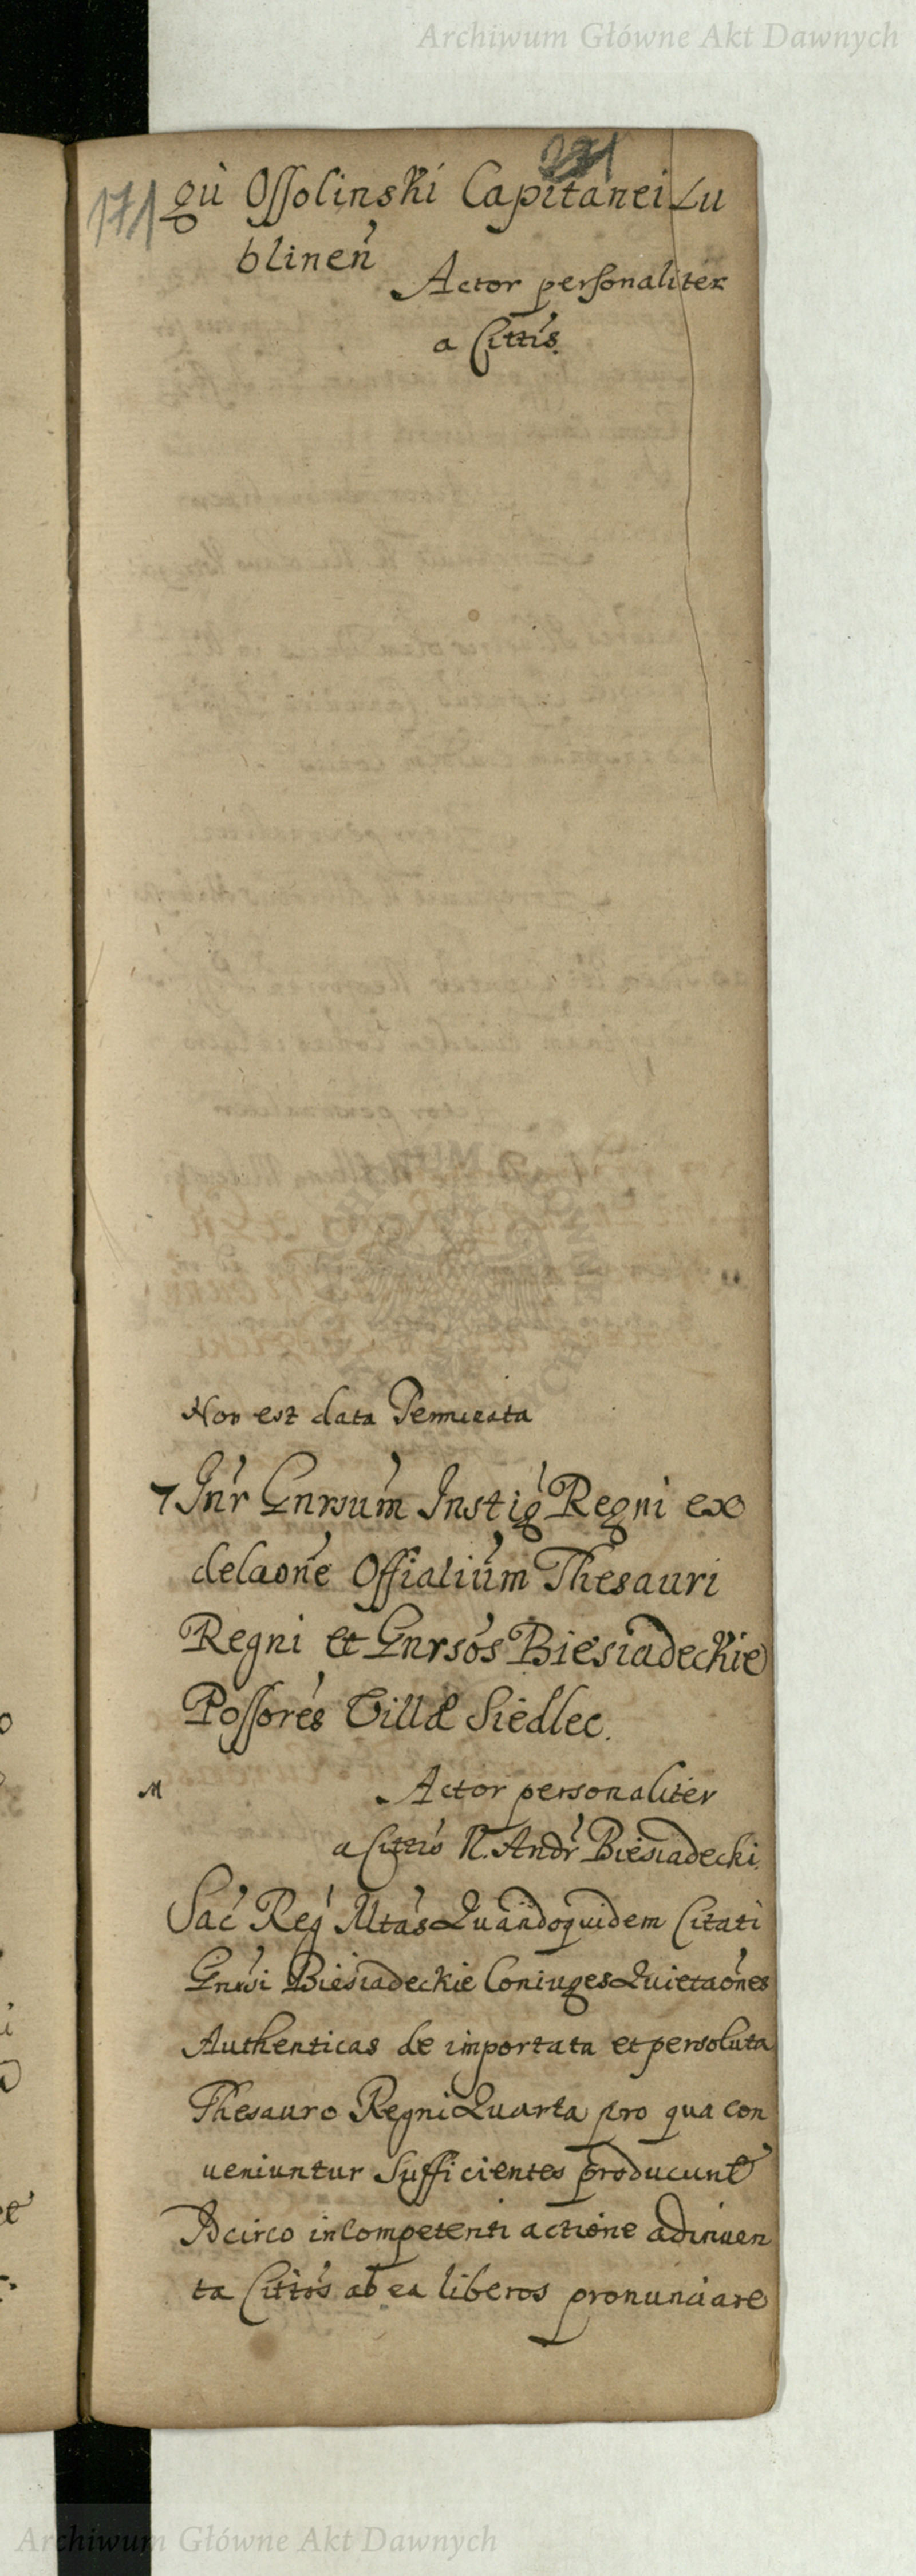 Archiwum Główne Akt Dawnych
171
gù Ossolinski Capitanei Lu
blinen̄
Actor personaliter
a Cittis.
Non est data
7 Inr Gnrsum Instig Regni ex
delaone Offialium Thesauri
Regni et Gnrsos Biesiadeckie
Possores Villæ Siedlec.
M
Actor personaliter
a Cittis N. Andr Biesiadecki.
Sac Reg Mtas Quandoquidem Citati
Gnrsi Biesiadeckie Coniuges Quietaones
Authenticas de importata et persoluta
Thesauro Regni Quarta pro qua con
ueniuntur Sufficientes producunt
Idcirco incompetenti actione adinuen
ta Cittos ab ea liberos pronunciare
Archiwum Główne Akt Dawnych